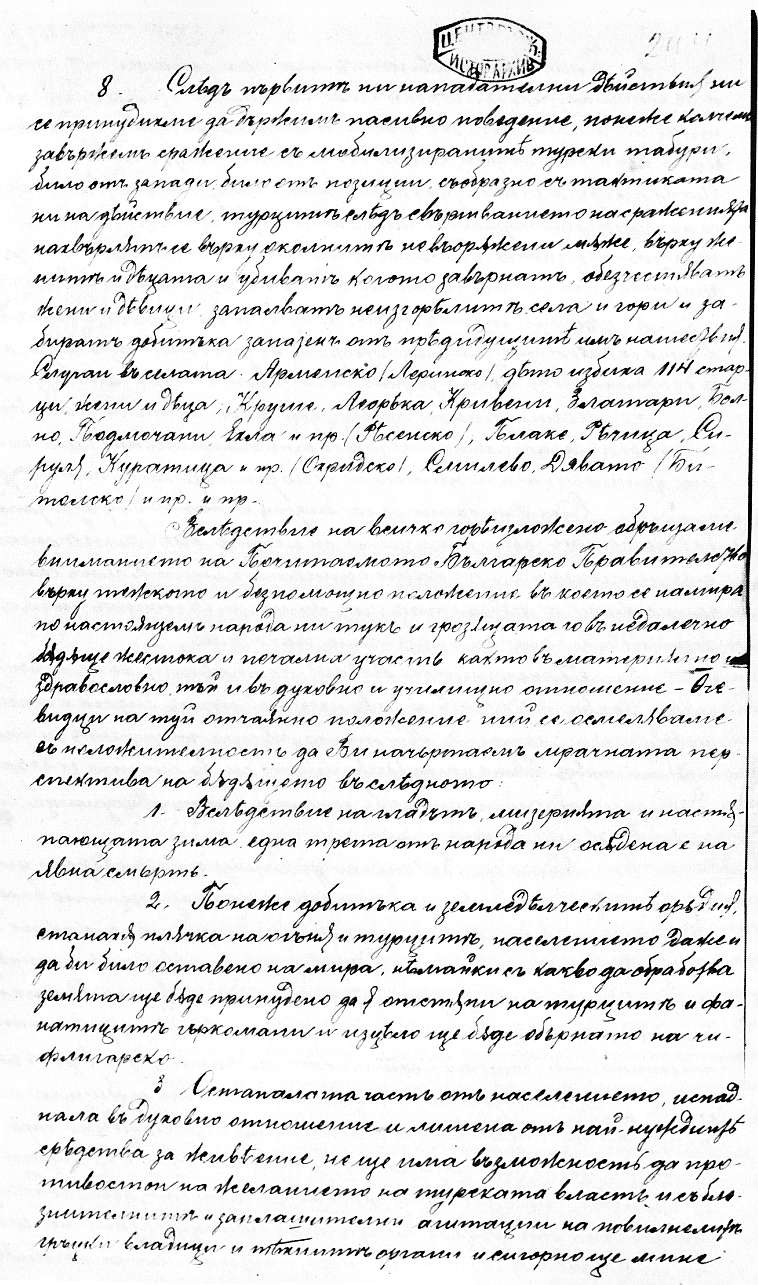 ЦЕНТР. ИСТОР. АРХИВ
8. Слѣдъ първитѣ ни нападателни дѣйствия ни
се принудихме да държимъ пасивно поведение, понеже колчемъ
завържемъ сражение съ мобилизиранитѣ турски табури,
било отъ запади, било отъ позиции, съобразно съ тактиката
ни на дѣйствие, турцитѣ слѣдъ свършванието на сраженията
нахвърлятъ се върху околнитѣ невъорѫжени мѫже, върху же-
нитѣ и дѣцата и убиватъ когото завърнатъ, обезчестяватъ
жени и дѣвици, запалватъ неизгорѣлитѣ села и гори и за-
биратъ добитъка запазенъ отъ прѣдидущитѣ имъ нашествия.
Случаи въ селата: Арменско (Леринско) дѣто избиха 114 стар-
ци, жени и дѣца; Круше, Леорѣка, Кривени, Златари, Бол-
но, Подмочани, Екла и пр. (Рѣсенско), Плаке, Рѣчица, Си-
руля, Куратица и пр. (Охридско), Смилево, Дявато (Би-
толско) и пр. и пр.
Вслѣдствие на всичко горѣизложено обрѫщаме
вниманието на Почитаемото Българско Правителство
върху тежкото и безпомощно положение въ което се намира
по настоящемъ народа ни тукъ и грозящата го въ недалечно
бѫдѫще жестока и печална участь както въ материялно и
здравословно, тъй и въ духовно и училищно отношение – Оче-
видци на туй отчаяно положение ний се осмеляваме
съ неложителность да Ви начъртаемъ мрачната пер-
спектива на бѫдѫщето въ слѣдното:
1. Вслѣдствие на гладътъ, мизерията и настѫ-
пающата зима една трета отъ народа ни осѫдена е на
явна смърть.
2. Понеже добитъка и земледѣлческитѣ орѫдия,
станахѫ плячка на огъня и турцитѣ, населението даже и
да би било оставено на мира, нѣмайки съ какво да обработва
земята ще бѫде принудено да ѭ отстѫпи на турцитѣ и фа-
натицитѣ гъркомани и изцѣло ще бѫде обърнато на чи-
флигарско.
3 Останалата часть отъ населението, испад-
нала въ духовно отношение и лишена отъ най-нуждитѣ
срѣдства за живѣение, не ще има възможность да про-
тивостои на желанието на турската власть и съблаз-
знителнитѣ и заплашителни агитации на
гръцки владици и тѣхнитѣ органи и сигорно ще мине